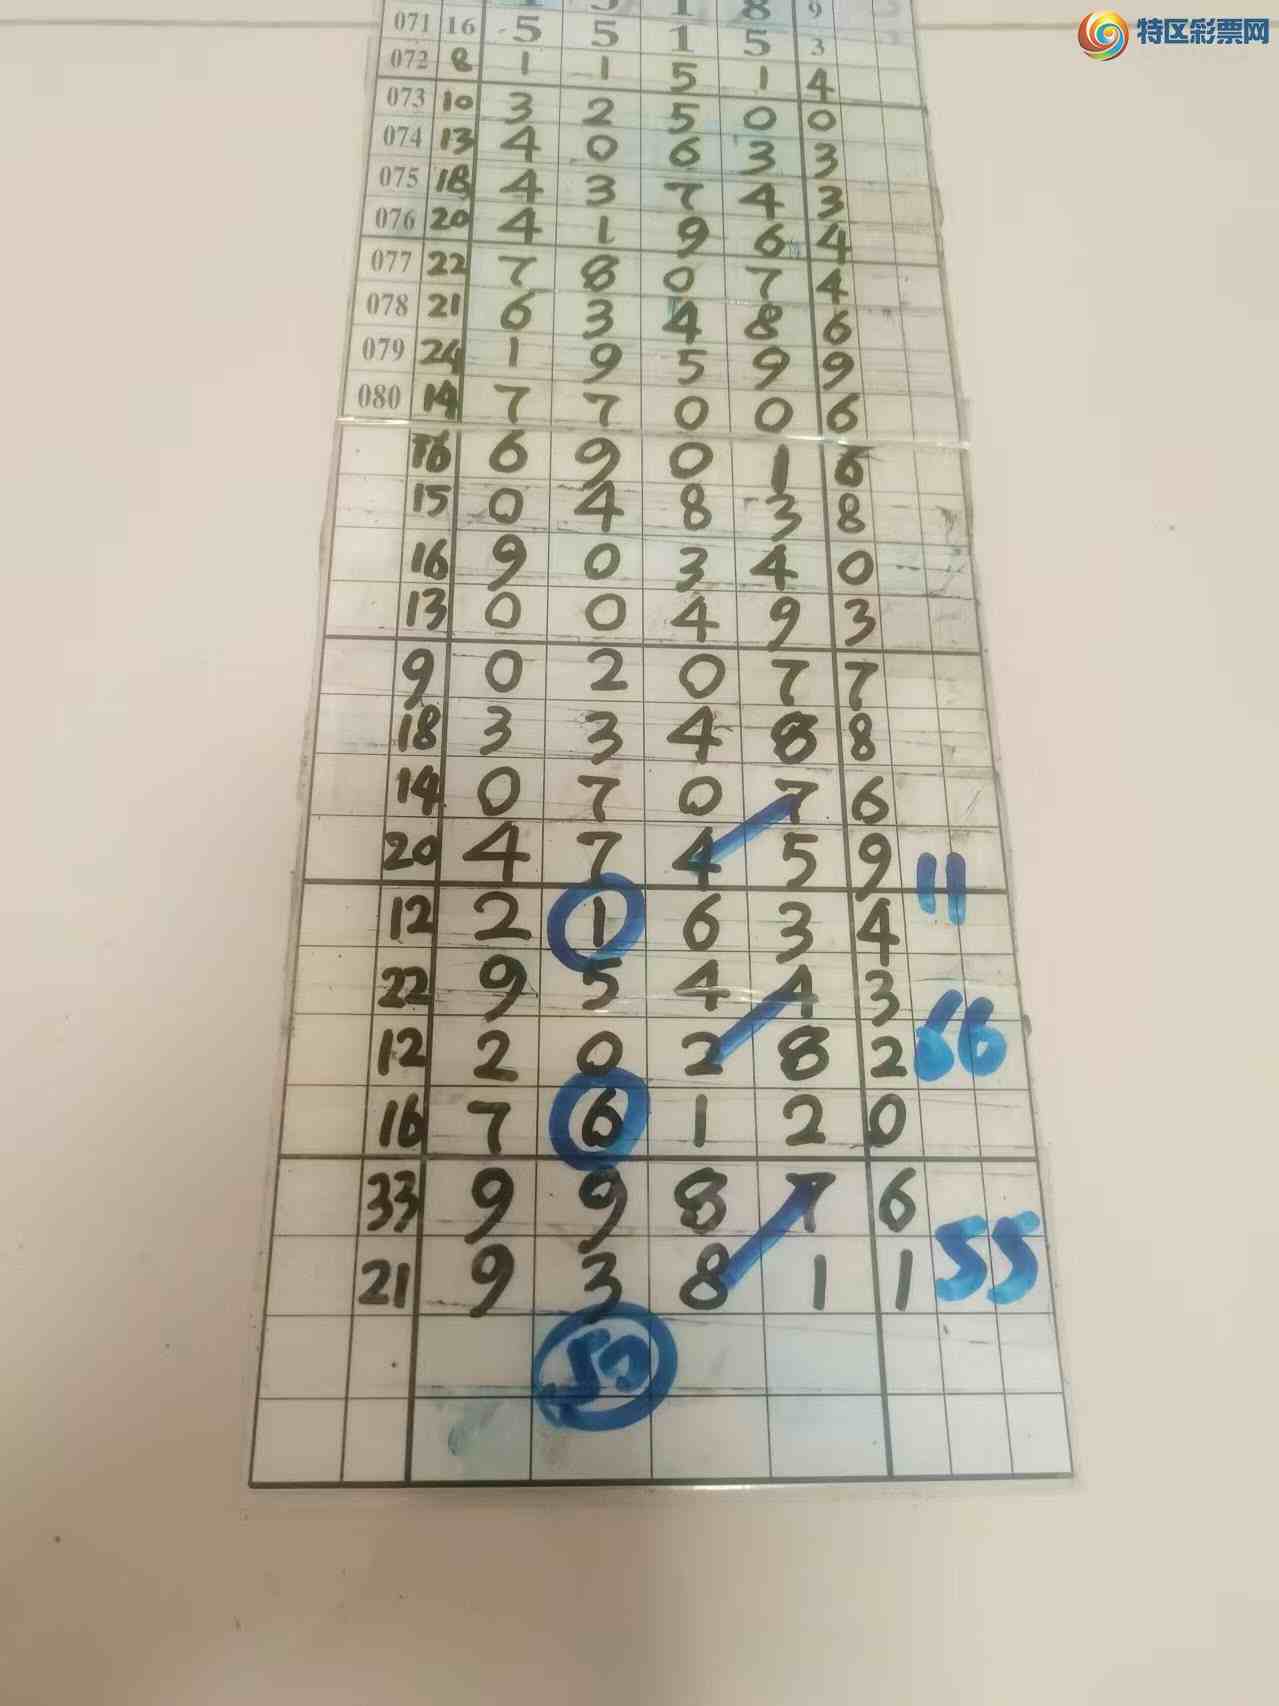 特区彩票网
1 8 9
071 16 5 5 1 5 3
072 8 1 1 5 1 4
073 10 3 2 5 0 0
074 13 4 0 6 3 3
075 18 4 3 7 4 3
076 20 4 1 9 6 4
077 22 7 8 0 7 4
078 21 6 3 4 8 6
079 24 1 9 5 9 9
080 14 7 7 0 0 6
16 6 9 0 1 6
15 0 4 8 3 8
16 9 0 3 4 0
13 0 0 4 9 3
9 0 2 0 7 7
18 3 3 4 8 8
14 0 7 0 7 6
20 4 7 4 5 9
11
12 2 1 6 3 4
22 9 5 4 4 3
12 2 0 2 8 2 66
16 7 6 1 2 0
33 9 9 8 7 6
21 9 3 8 1 1 55